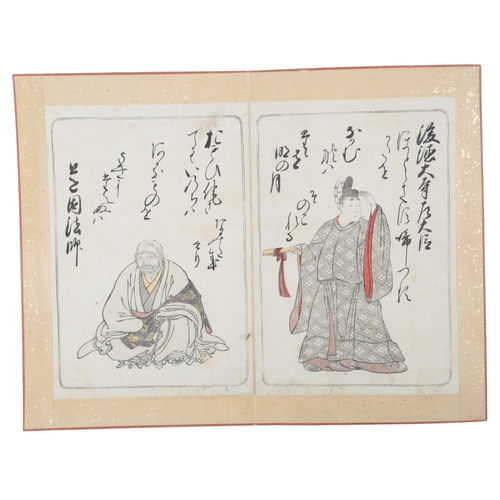 後徳大寺左大臣
ほとゝきす啼つる
かたを
なかむ
れは
明の月
そのこ
れる
おもひ侘
さてもいのちは
あるものを
うきに
たへぬは
なみた成
けり
道因法師